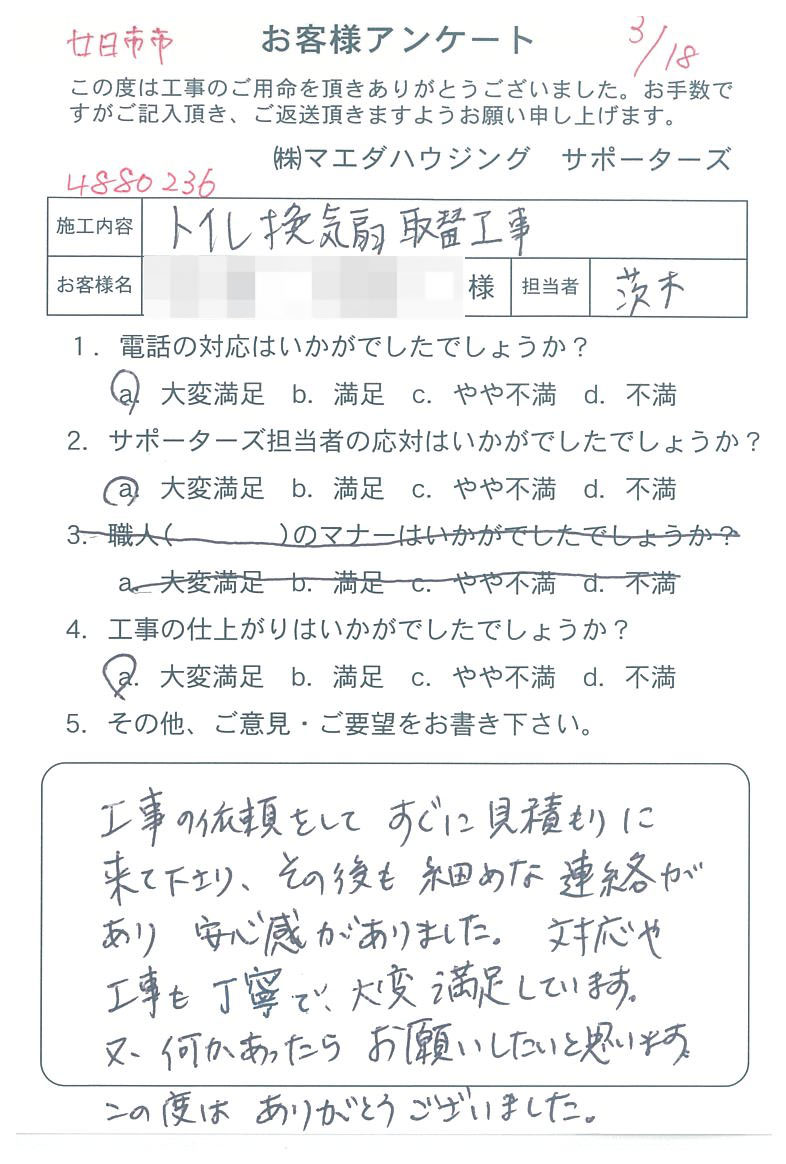 廿日市市
お客様アンケート
3/18
この度は工事のご用命を頂きありがとうございました。お手数で
すがご記入頂き、ご返送頂きますようお願い申し上げます。
㈱マエダハウジング サポーターズ
4880236
施工内容 トイレ換気扇取替工事
お客様名 様 担当者 茨木
1. 電話の対応はいかがでしたでしょうか？
a. 大変満足 b. 満足 c. やや不満 d. 不満
2. サポーターズ担当者の応対はいかがでしたでしょうか？
a. 大変満足 b. 満足 c. やや不満 d. 不満
3. 職人( )のマナーはいかがでしたでしょうか？
a. 大変満足 b. 満足 c. やや不満 d. 不満
4. 工事の仕上がりはいかがでしたでしょうか？
a. 大変満足 b. 満足 c. やや不満 d. 不満
5. その他、ご意見・ご要望をお書き下さい。
工事の依頼をして すぐに見積もりに
来て下さり、その後も 細めな 連絡が
あり 安心感がありました。 対応や
工事も丁寧で、大変満足しています。
又、何かあったら お願いしたいと思います。
この度は ありがとうございました。